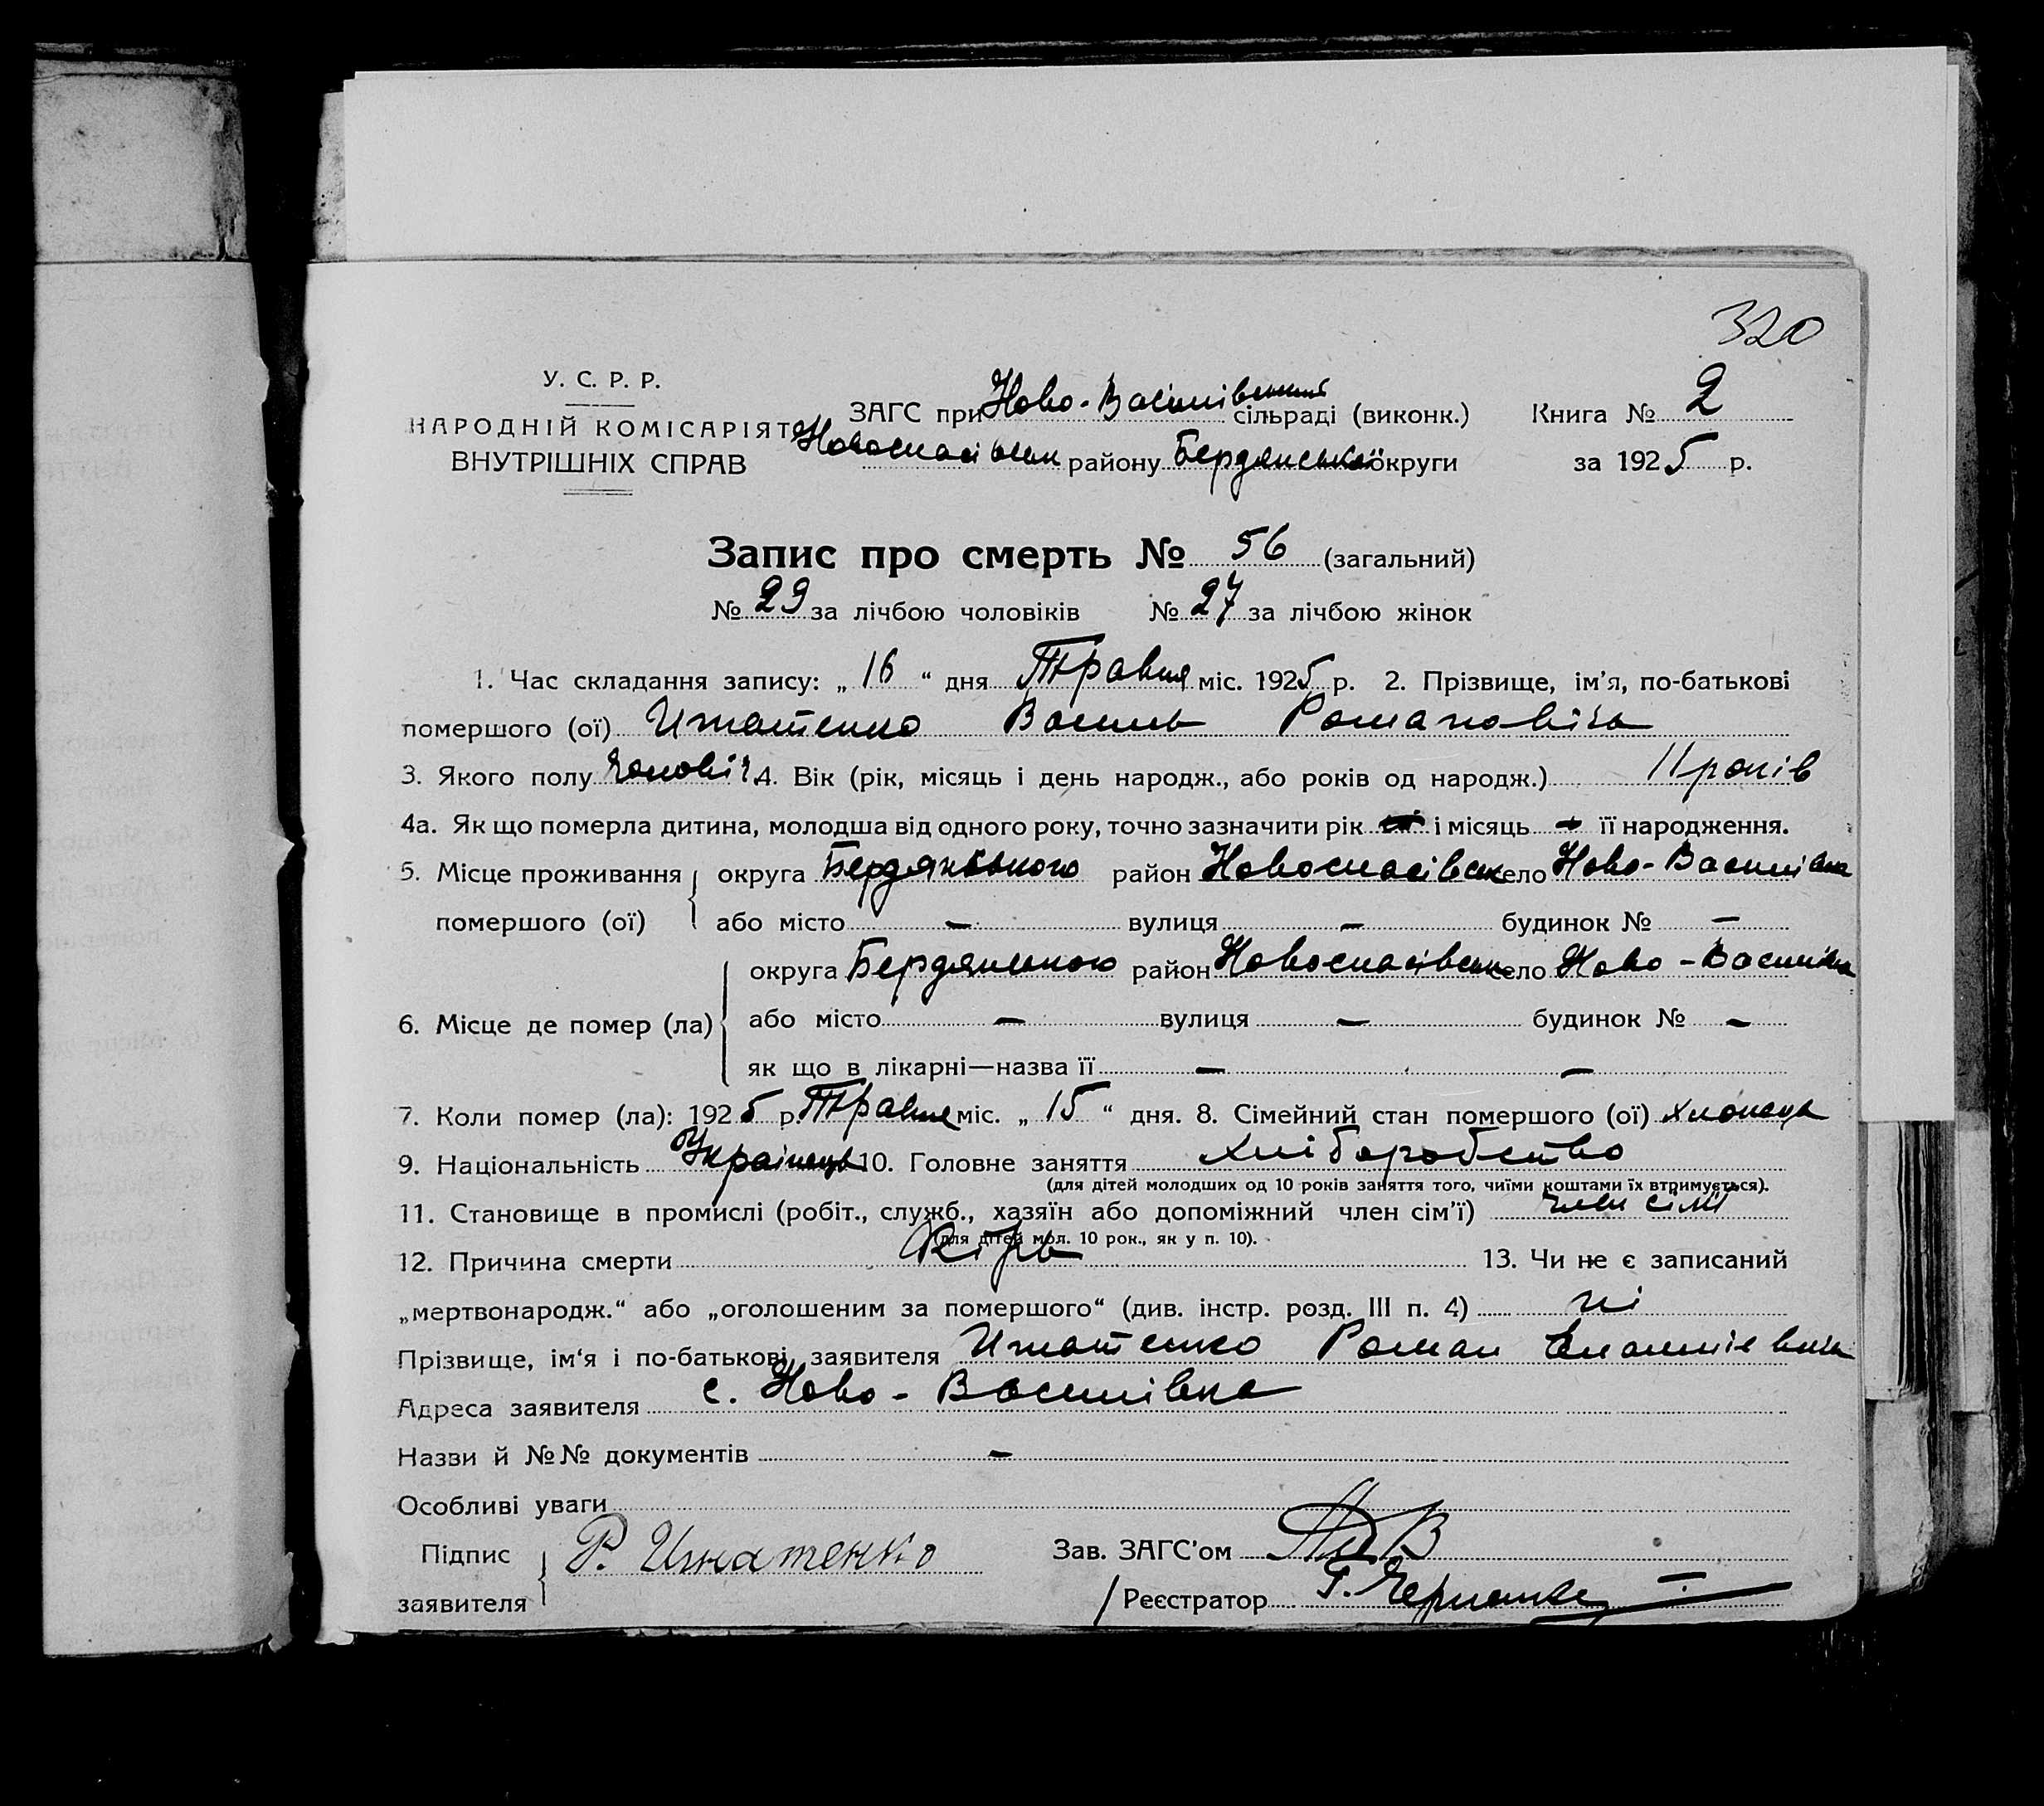 320
У. С. Р. Р.
НАРОДНІЙ КОМІСАРІЯТ
ВНУТРІШНІХ СПРАВ
ЗАГС при Ново-Василівський сільраді (виконк.) Книга № 2
Новоспасівськ району Бердянської округи за 1925 р.
Запис про смерть № 56 (загальний)
№ 29 за лічбою чоловіків № 27 за лічбою жінок
1. Час складання запису: „ 16 “ дня Травня міс. 1925 р. 2. Прізвище, ім’я, по-батькові
помершого (ої) Игнатенко Василь Романовіч
3. Якого полу чоловіч. 4. Вік (рік, місяць і день народж., або років од народж.) 11 років
4а. Як що померла дитина, молодша від одного року, точно зазначити рік і місяць — її народження.
5. Місце проживання округа Бердянського район Новоспасівськ село Ново-Василівка
помершого (ої) або місто — вулиця — будинок № —
округа Бердянського район Новоспасівськ село Ново-Василівка
6. Місце де помер (ла) або місто — вулиця — будинок № —
як що в лікарні—назва її — —
7. Коли помер (ла): 1925 р. Травня міс. „ 15 “ дня. 8. Сімейний стан помершого (ої) хлопець
9. Національність Українець 10. Головне заняття Хліборобство
(для дітей молодших од 10 років заняття того, чиїми коштами їх втримується).
11. Становище в промислі (робіт., служб., хазяїн або допоміжний член сім’ї) член сімї
(для дітей мол. 10 рок., як у п. 10).
12. Причина смерти Кір 13. Чи не є записаний
„мертвонародж.“ або „оголошеним за помершого“ (див. інстр. розд. III п. 4) ні
Прізвище, ім‘я і по-батькові заявителя Игнатенко Роман
Адреса заявителя с. Ново-Василівка
Назви й №№ документів —
Особливі уваги
Підпис Р. Игнатенко Зав. ЗАГС’ом
заявителя Реєстратор Г.